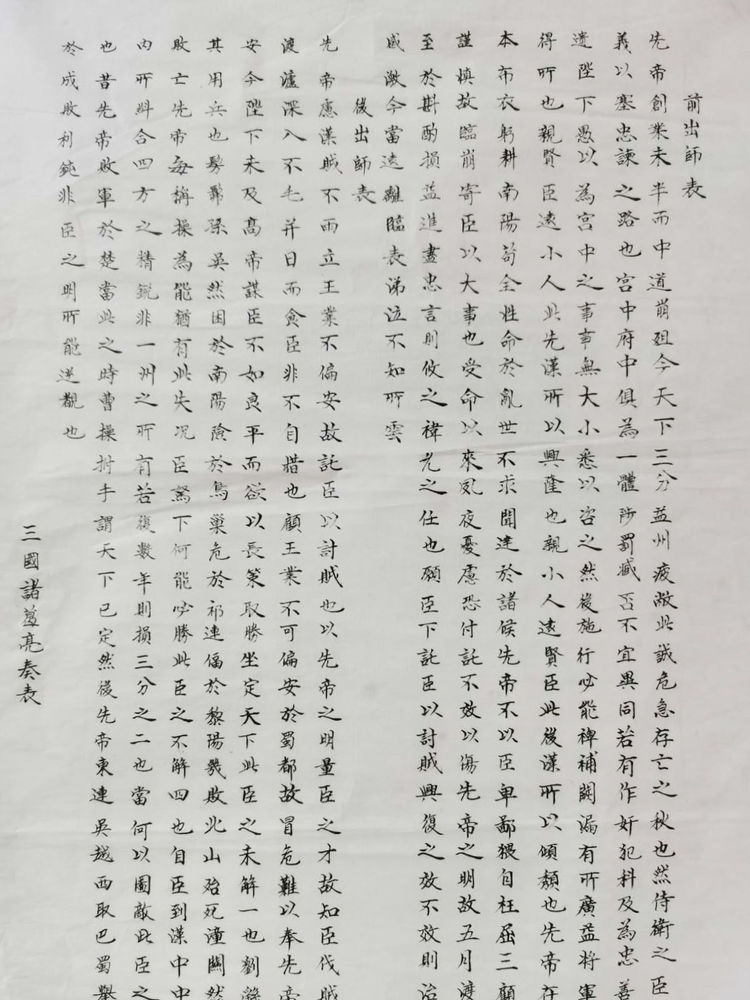 前出師表
先帝創業未半而中道崩殂今天下三分益州疲敝此誠危急存亡之秋也然侍衛之臣
義以塞忠諫之路也宮中府中俱為一體陟罰臧否不宜異同若有作奸犯科及為忠善
遺陛下愚以為宮中之事事無大小悉以咨之然後施行必能裨補闕漏有所廣益將軍
得所也親賢臣遠小人此先漢所以興隆也親小人遠賢臣此後漢所以傾頹也先帝在
本布衣躬耕南陽苟全性命於亂世不求聞達於諸侯先帝不以臣卑鄙猥自枉屈三顧
謹慎故臨崩寄臣以大事也受命以來夙夜憂慮恐付託不效以傷先帝之明故五月渡
至於斟酌損益進盡忠言則攸之褘允之任也願臣下託臣以討賊興復之效不效則治
感激今當遠離臨表涕泣不知所雲
後出師表
先帝慮漢賊不兩立王業不偏安故託臣以討賊也以先帝之明量臣之才故知臣伐賊
渡瀘深入不毛并日而食臣非不自惜也顧王業不可偏安於蜀都故冒危難以奉先帝
安今陛下未及高帝謀臣不如良平而欲以長策取勝坐定天下此臣之未解一也劉繇
其用兵也髣髴孫吳然困於南陽險於烏巢危於祁連偪於黎陽幾敗北山殆死潼關然
敗亡先帝每稱操為能猶有此失況臣駑下何能必勝此臣之不解四也自臣到漢中中
內所糾合四方之精銳非一州之所有若復數年則損三分之二也當何以圖敵此臣之
也昔先帝敗軍於楚當此之時曹操拊手謂天下已定然後先帝東連吳越西取巴蜀舉
於成敗利鈍非臣之明所能逆覩也
三國諸葛亮奏表